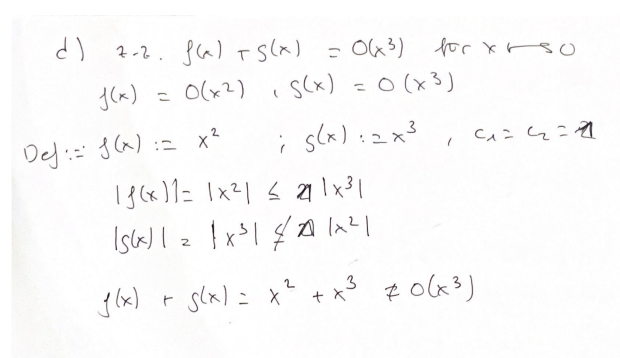 d) z.z. f(x) + g(x) = O(x³) for x → 0
f(x) = O(x²) , g(x) = O(x³)
Def:= f(x) := x² ; g(x) := x³ , c₁ = c₂ = 1
|f(x)| = |x²| ≤ 1 |x³|
|g(x)| = |x³| ≰ 1 |x²|
f(x) + g(x) = x² + x³ ≠ O(x³)